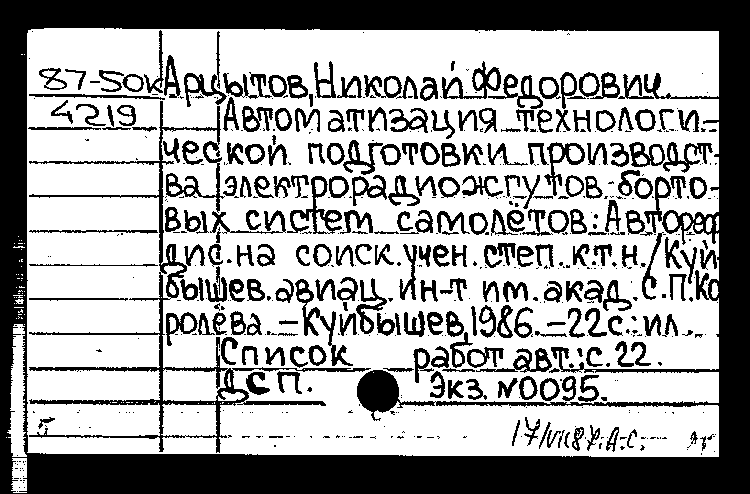 87-50к Арцытов, Николай Федорович.
4219 Автоматизация технологи-
ческой подготовки производст-
ва электрорадиожгутов борто-
вых систем самолётов: Автореф
дис. на соиск. учен. степ. к.т.н. / Куй-
бышев. авиац. ин-т им. акад. С.П. Ко
ролёва. – Куйбышев, 1986. – 22с.: ил.
Список работ авт.: с. 22.
ДСП. Экз. N0095.